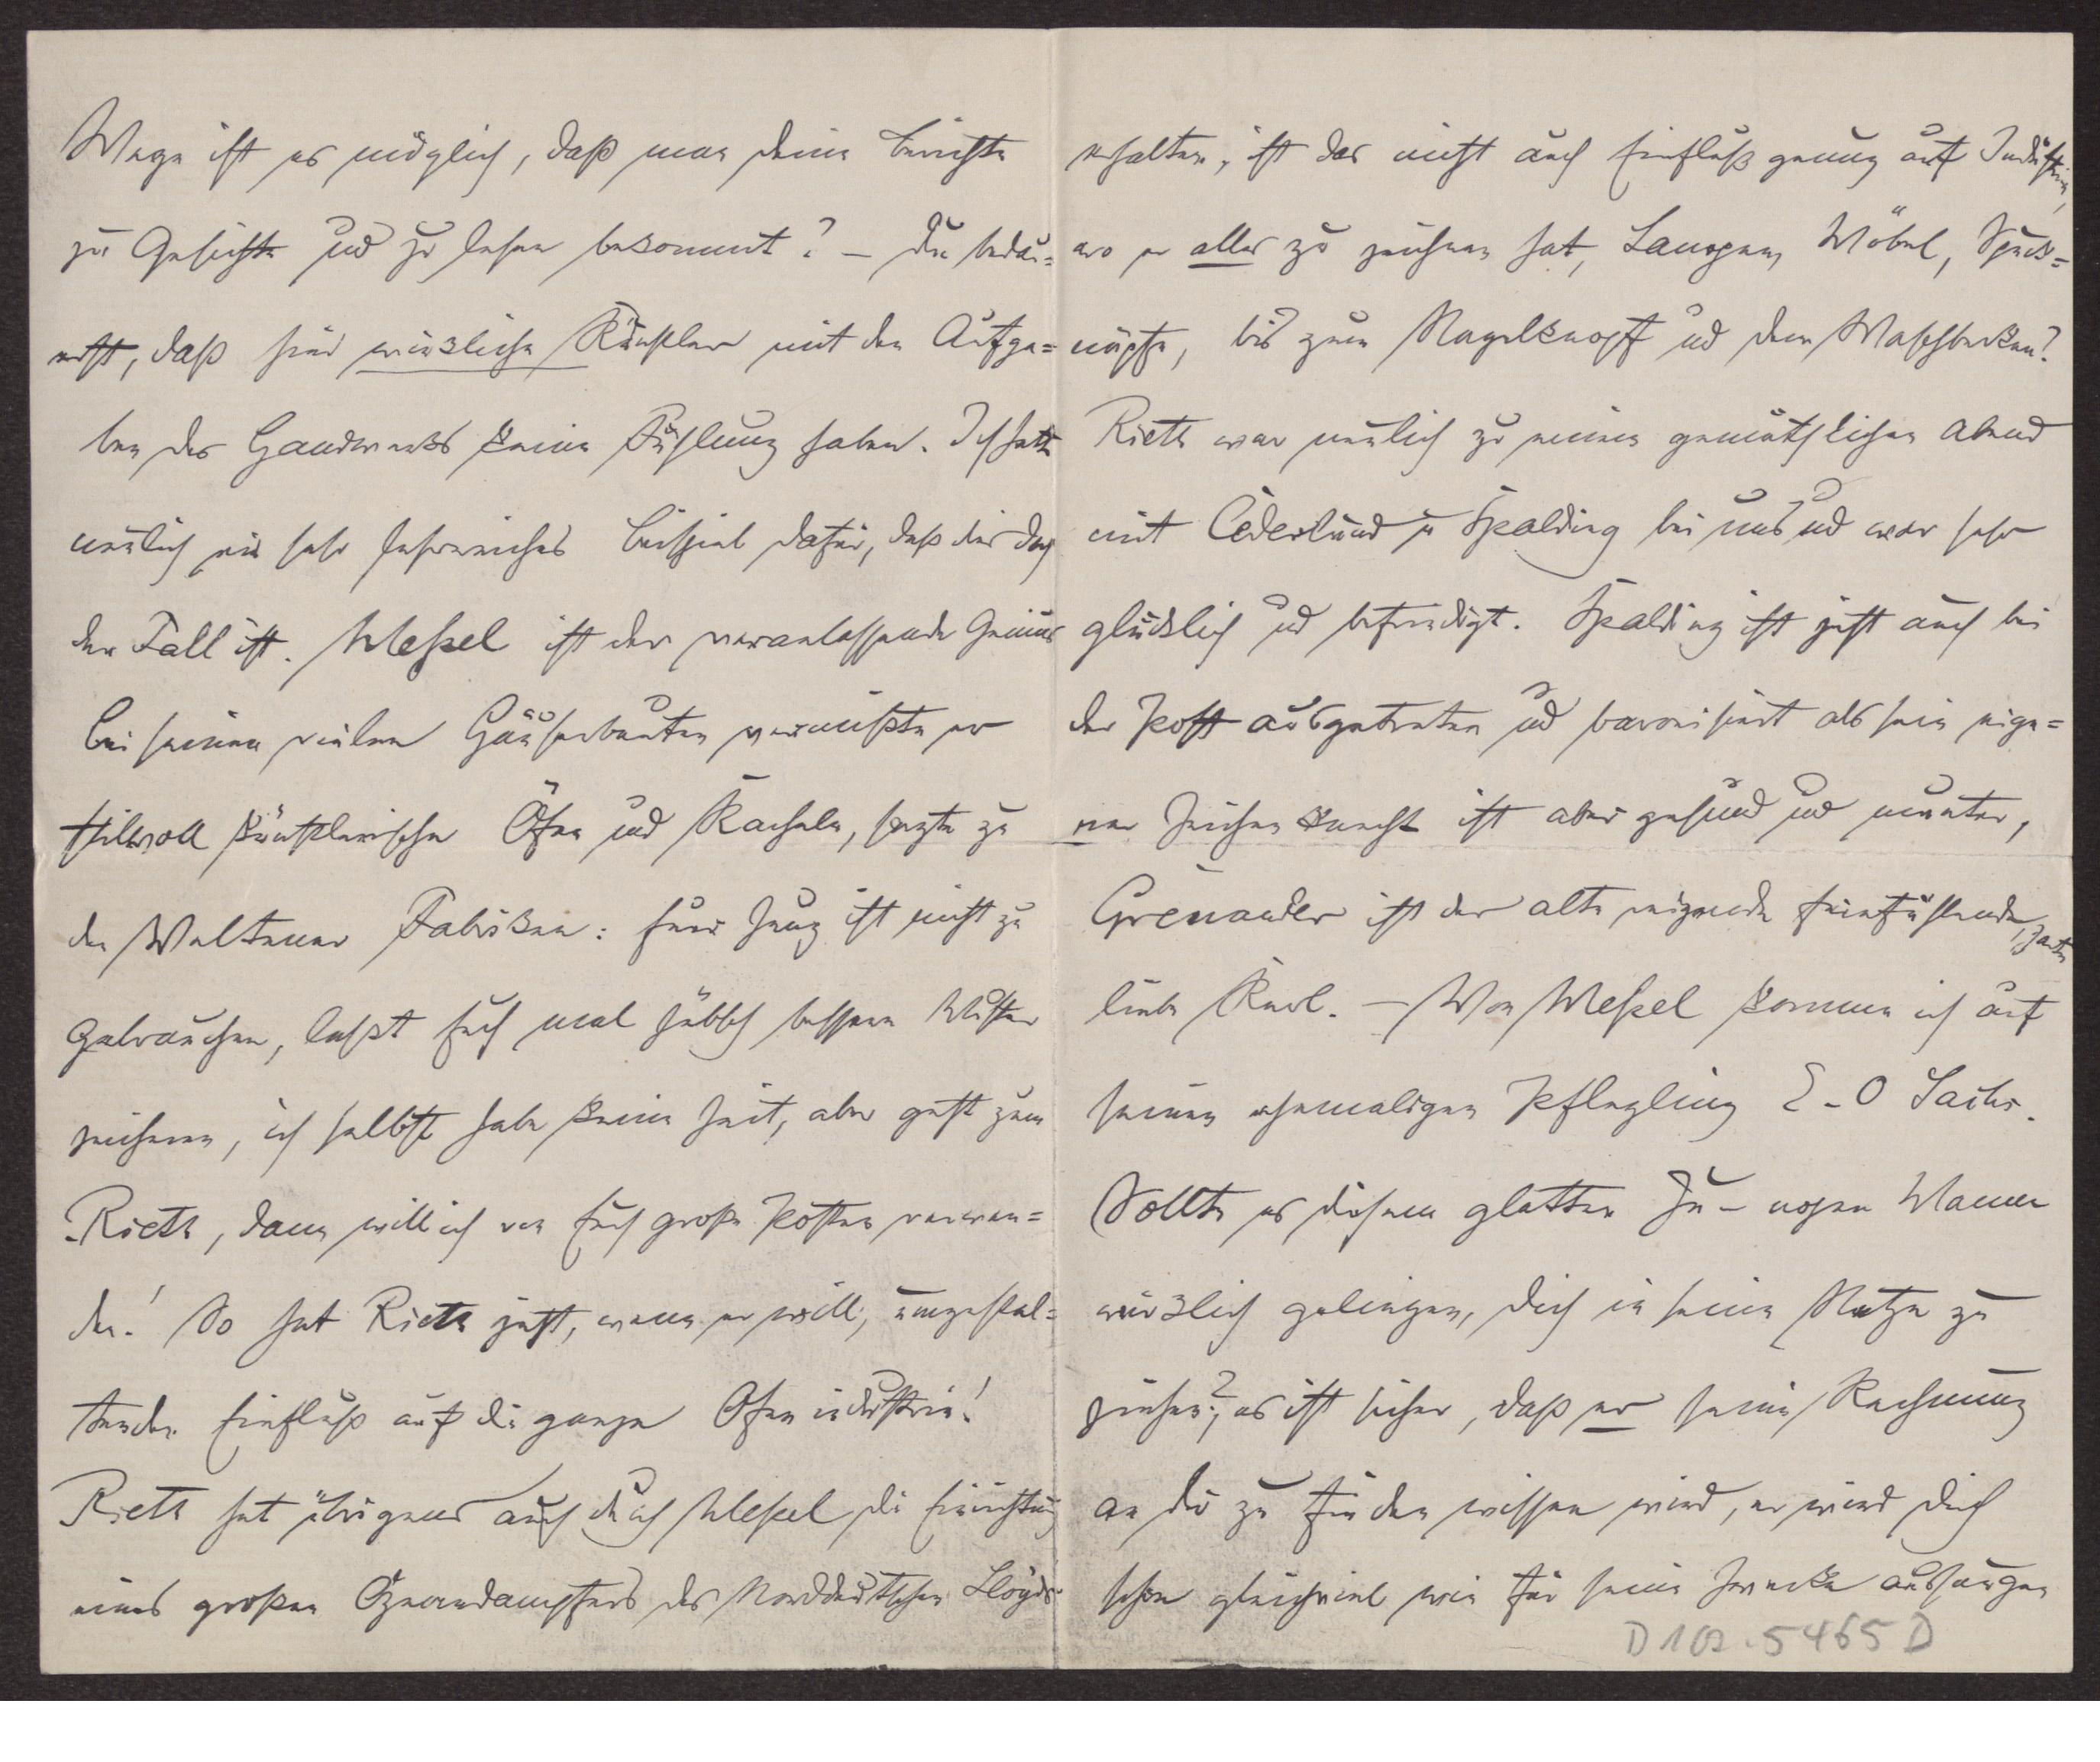 Wege ist es möglich, daß man deine Berichte
zu Gesichte und zu lesen bekommt? – Du bedau=
erst, daß hier wirkliche Künstler mit den Aufga=
ben des Handwerks keine Fühlung haben. Ich hatte
neulich ein sehr lehrreiches Beispiel dafür, daß dies doch
der Fall ist. Messel ist der veranlassende Genius
Bei seinen vielen Häuserbauten vermißte er
stilvoll künstlerische Öfen und Kacheln, sagte zu
den Veltener Fabriken: Euer Zeug ist nicht zu
gebrauchen, laßt Euch mal hübsch bessere Muster
zeichnen, ich selbst habe keine Zeit, aber geht zum
Rieth, dann will ich von Euch große Posten verwen=
den! So hat Rieth jetzt, wenn er will, umgestal=
tenden Einfluß auf die ganze Ofenindustrie!
Rieth hat übrigens auch durch Messel die Einrichtung
eines großen Ozeandampfers des Norddeutschen Lloyds
erhalten, ist das nicht auch Einfluß genug auf Industrie,
wo er alles zu zeichnen hat, Lampen, Möbel, Spuck=
näpfe, bis zum Nagelknopf und dem Waschbecken?
Rieth war neulich zu einem gemüthlichen Abend
mit Cederlund u Spalding bei uns und war sehr
glücklich und befriedigt. Spalding ist jetzt auch bei
der Post ausgetreten und baronisiert als sein eige=
ner Zeichenknecht ist aber gesund und munter,
Grenander ist der alte reizende feinfühlende, zarte
liebe Kerl. – Von Messel komme ich auf
seinen ehemaligen Pflegling E-O Sachs.
Sollte es diesem glatten Ju – ngen Manne
wirklich gelingen, Dich in seine Netze zu
ziehen?, es ist sicher, daß er seine Rechnung
an dir zu finden wissen wird, er wird dich
schon gleichviel wie für seine Zwecke aussaugen
D 102.5465 D